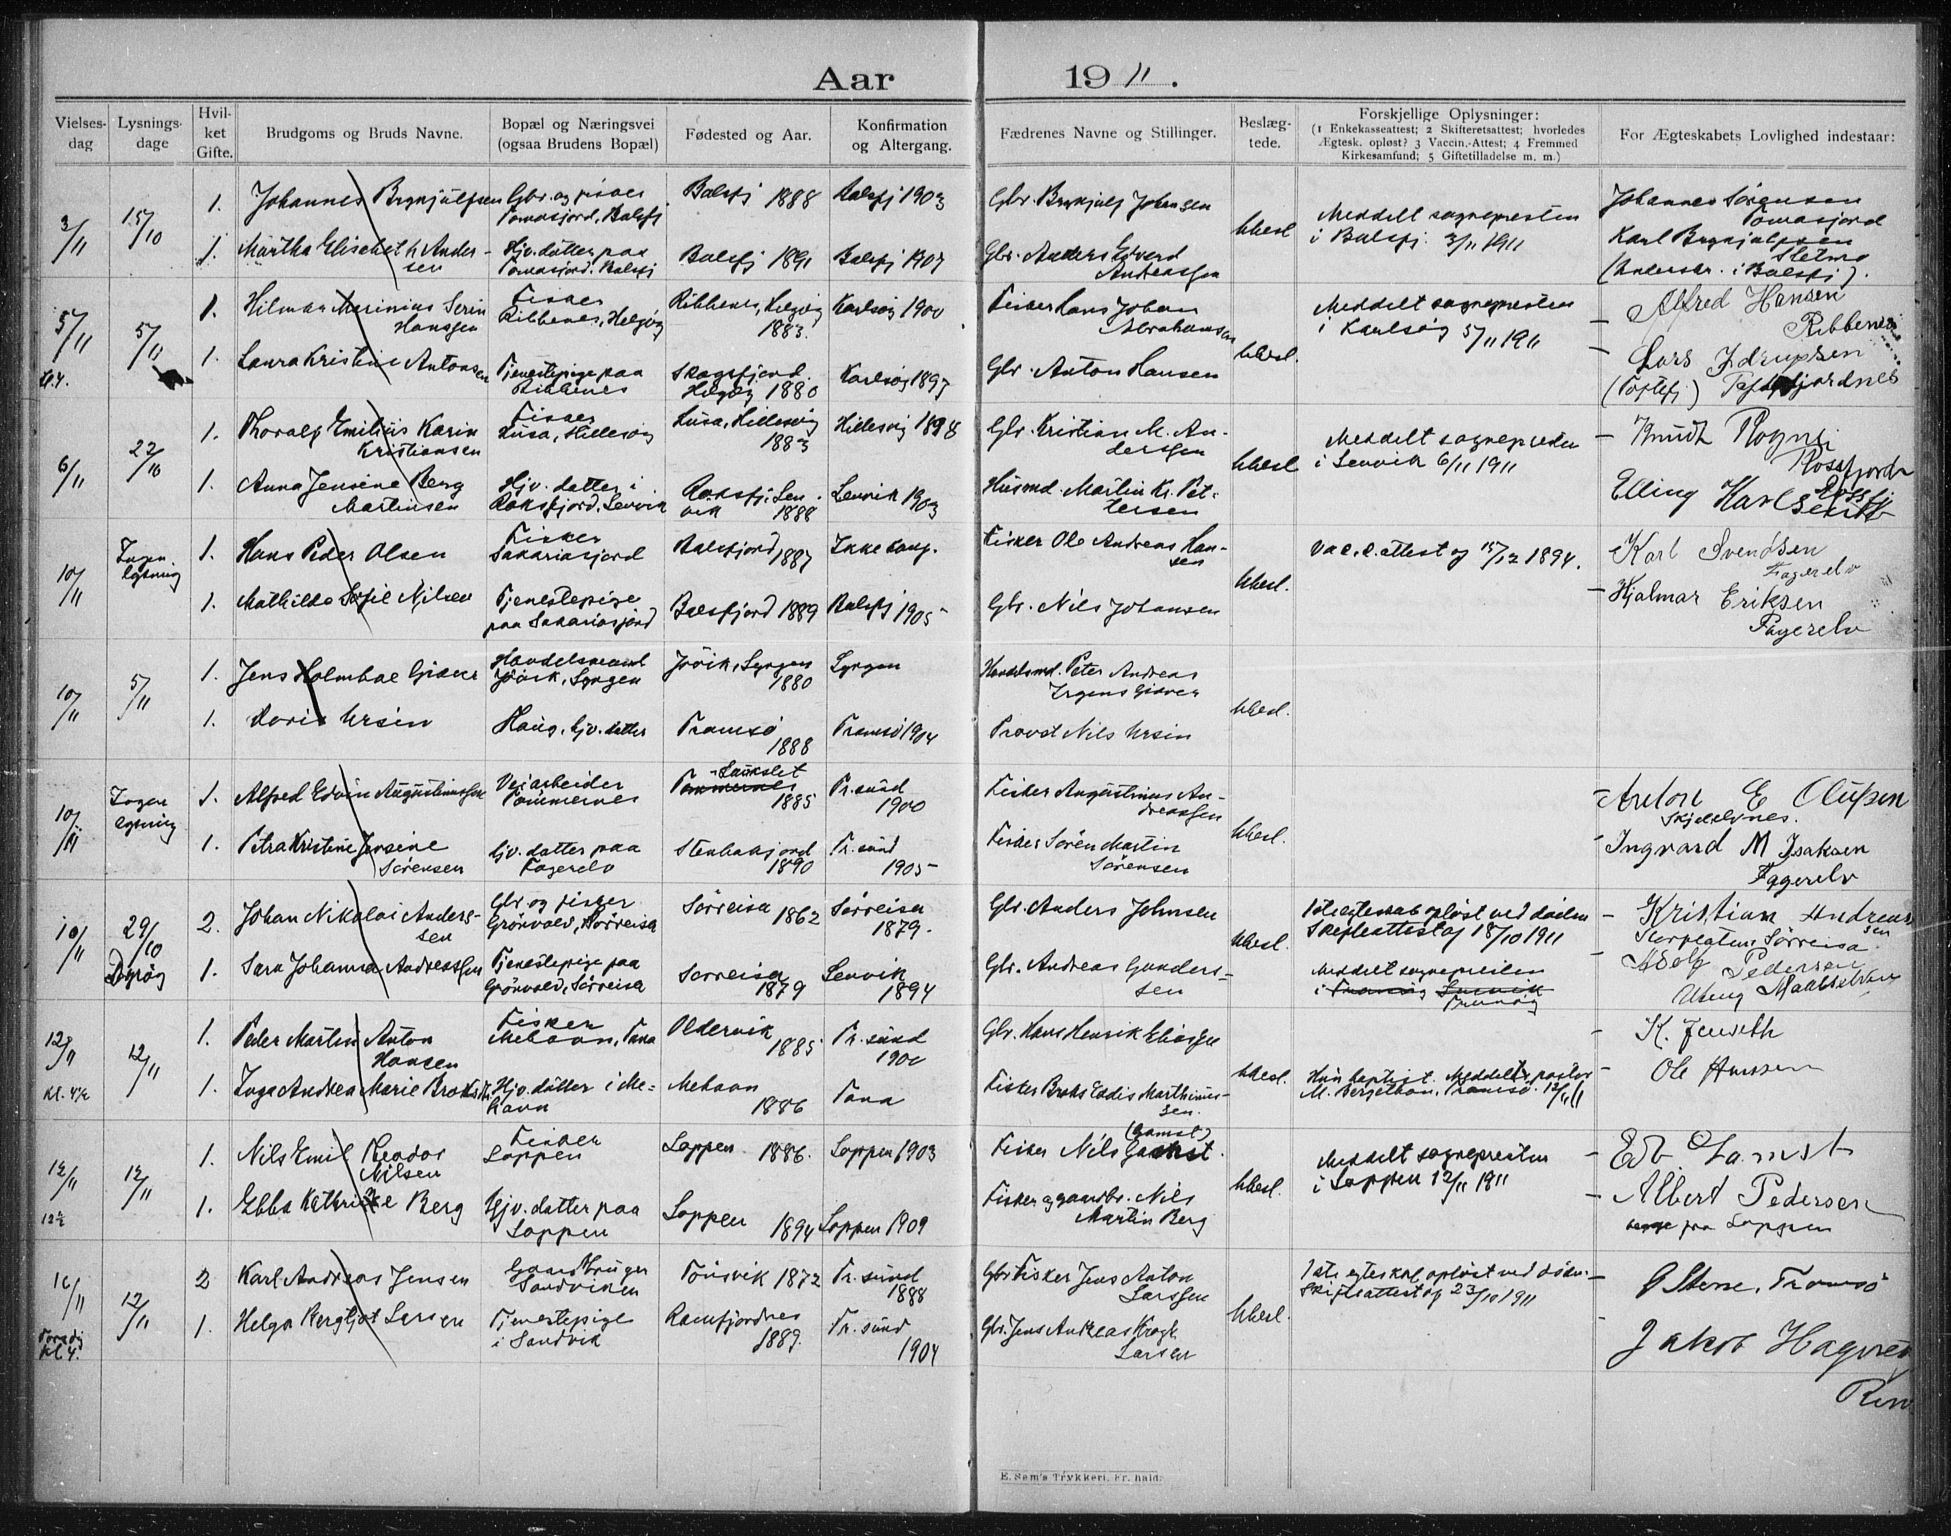 Aar 1911.
Vielses-dag
Lysnings-dage
Hvil-ket Gifte.
Brudgoms og Bruds Navne.
Bopæl og Næringsvei (ogsaa Brudens Bopæl)
Fødested og Aar.
Konfirmation og Altergang.
Fædrenes Navne og Stillinger.
Beslæg-tede.
Forskjellige Oplysninger: (1 Enkekasseattest; 2 Skifteretsattest; hvorledes Ægtesk. opløst? 3 Vaccin.-Attest; 4 Fremmed Kirkesamfund; 5 Giftetilladelse m. m.)
For Ægteskabets Lovlighed indestaar:
3/11 15/10 1. Johannes Brynjulfsen Gbr. og fisker Tomasjord, Balsfj Balsfj 1888 Balsfj 1903 Gbr. Brynjulf Johansen Ubesl. Meddelt sognepresten i Balsfj. 3/11 1911 Johannes Sørensen Tomasjord
1. Martha Elisebeth Andersen Hjv. datter paa Tomasjord, Balsfj Balsfj 1891 Balsfj 1907 Gbr. Anders Edvard Andreassen Karl Brynjulfsen Sletmo (Andersbr. i Balsfj).
5/11 kl. 4. 5/11 1. Hilmar Marinius Serin Hanssen Fisker Ribbenes, Helgøy Ribbenes, Helgøy 1883. Karlsøy 1900 Fisker Hans Johan Abrahamsen Ubesl. Meddelt sognepresten i Karlsøy 5/11 1911 - Alfred Hansen Ribbenes
1. Laura Kristine Antonsen Tjenestepige paa Ribbenes Skogsfjord Helgøy 1880 Karlsøy 1897 Gbr. Anton Hansen - Lars
6/11 22/10 1. Thoralf Emilius Karin Kristiansen Fisker Lusa, Hillesøy Lusa, Hillesøy 1883 Hillesøy 1898 Gbr. Kristian M. Andersen Ubesl Meddelt sognepresten i Lenvik 6/11 1911 - Knudt Rognli Rossfjord
1. Anna Jensine Berg Martinsen Hjv. datter i Rossfjord, Lenvik Rossfj. Lenvik 1888 Lenvik 1903 Husmd. Martin Kr. Pettersen Elling Karlsen
10/11 Ingen lysning 1. Hans Peder Olsen Fisker Sakariasjord Balsfjord 1887 Ikke konf. Fisker Ole Andreas Hansen Ubesl. Vacc. attest af 15/12 1894. - Karl Svendsen Fagerelv
1. Mathilde Sofie Nilsen Tjenestepige paa Sakariasjord Balsfjord 1889 Balsfj 1905 Gbr. Nils Johansen - Hjalmar Eriksen Fagerelv
10/11 5/11 1. Jens Holmboe Giæver Handelsmand Jøvik, Lyngen Jøvik, Lyngen 1880 Lyngen Handelsmd. Peter Andreas Irgens Giæver Ubesl.
1. Doris Ursin Haug, hjv. datter Tromsø 1888 Tromsø 1904 Provst Nils Ursin
10/11 Ingen lysning 1. Alfred Edvin Augustinussen Veiarbeider Tommernes Laukslet 1885 Tr.sund 1900 Fisker Augustinus Andreassen Ubesl. - Anton E Olufsen Skjelelvnes.
1. Petra Kristine Jensine Sørensen hjv. datter paa Fagerelv Stenhakjord 1890 Tr. sund 1905 Fisker Søren Martin Sørensen - Ingvard M Isaksen Fagerelv
10/11 Dyrøy 29/10 2. Johan Nikolai Anderssen Gbr. og fisker Grønvold, Sørreisa Sørreisa 1862 Sørreisa 1879. Gbr. Anders Johnsen Ubesl. 1ste egteskab opløst ved døden Skifteattest af 18/10 1911 - Kristian Andreassen Sørreisa
1. Sara Johanna Andreassen Tjenestepige paa Grønvold, Sørreisa Sørreisa 1879 Lenvik 1894 Gbr. Andreas Gunderssen Meddelt sognepresten i Tranøy Adolf Pedersen Maalselven
12/11 Kl. 4½ 12/11 1. Peder Martin Anton Hansen Fisker Mehavn, Tana Oldervik 1885 Tr. sund 1900 Gbr. Hans Henrik Eliassen Ubesl. - K. Jenseth
1. Inga Andrea Marie Broks Hjv. datter i Mehavn Mehavn 1886 Tana Fisker Broks Eddis Marthinussen. Hun baptist. Meddelt pastor M. Tromsø. 12/11 11 - Ole Hanssen
12/11 12½ 12/11 1. Nils Emil Teodor Nilsen Fisker Loppen Loppen 1886. Loppen 1903 Fisker Nils Gamst. (Gamst) Ubesl. Meddelt sognepresten i Loppen 12/11 1911 - Edv Gamst
1. Ebba Kathrine Berg Hjv. datter paa Loppen Loppen 1894 Loppen 1909 Fisker og gaardbr. Nils Martin Berg - Albert Pedersen begge fra Loppen
16/11 Torsdag kl. 4. 12/11 2 Karl Andreas Jensen Gaardbruger Sandviken Tønsvik 1872 Tr. sund 1888 Gbr. fisker Jens Anton Larssen Ubesl. 1ste egteskab opløst ved døden. Skifteattest af 23/10 1911 - O Stene, Tromsø
1. Helga Bergljot Larsen Tjenestepige i Sandvik Ramfjordnes 1889. Tr. sund 1904 Gbr. Jens Andreas Kragh Larsen Jakob Hagerup
E. Sem's Trykkeri, Fr.hald.